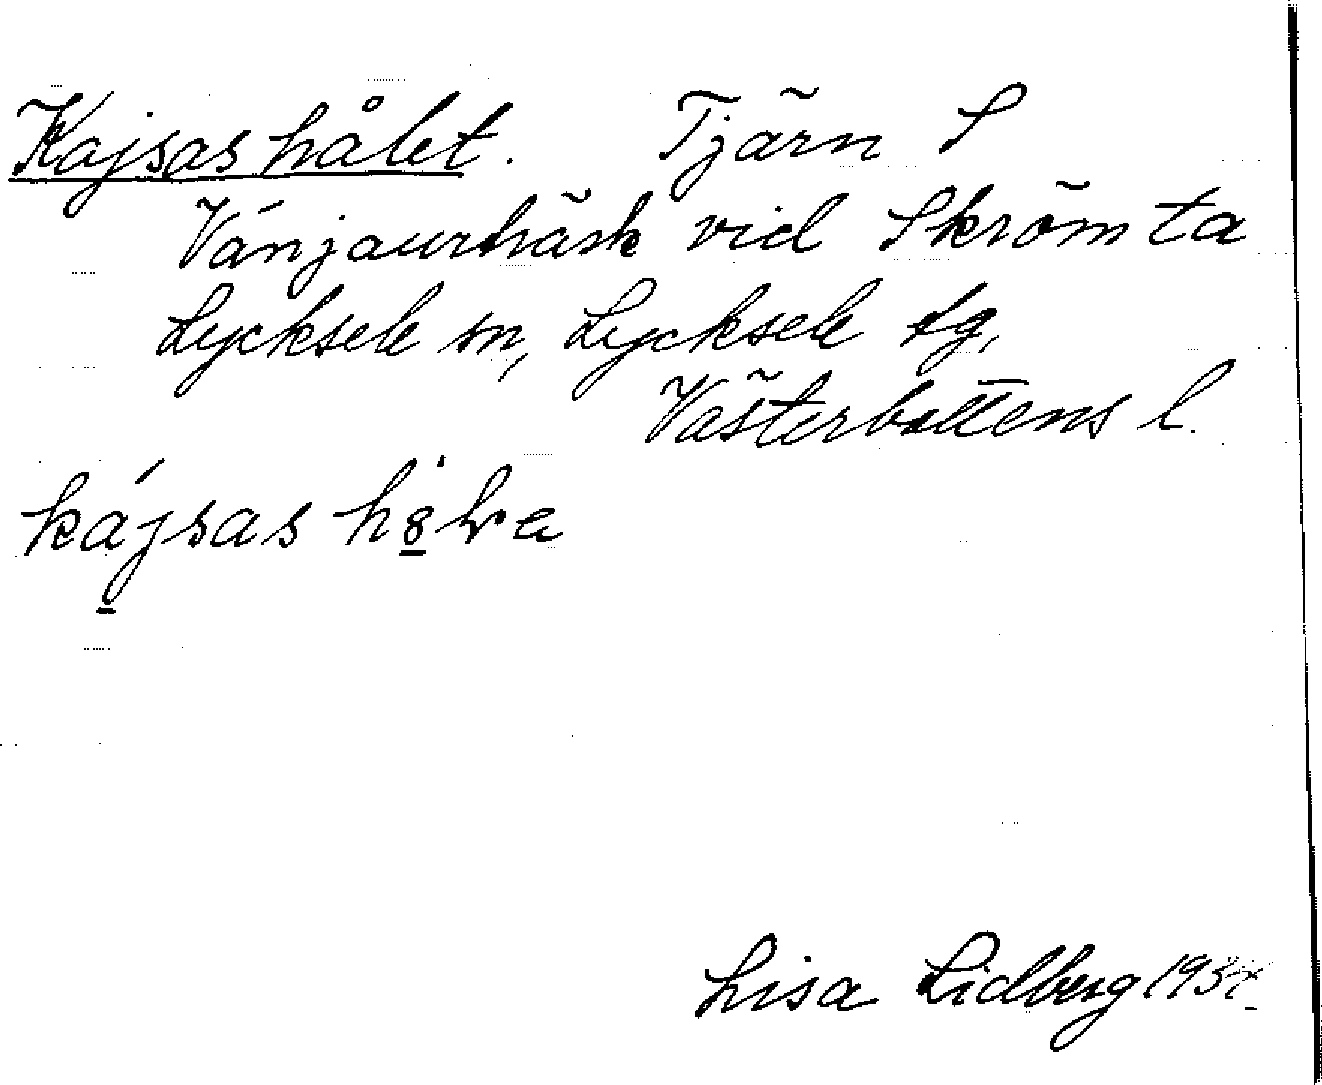 Kajsashålet. Tjärn S
Vänjaurträsk vid Skrömta
Lycksele sn, Lycksele tg,
Västerbottens l.
kajsas
Lisa Lidberg